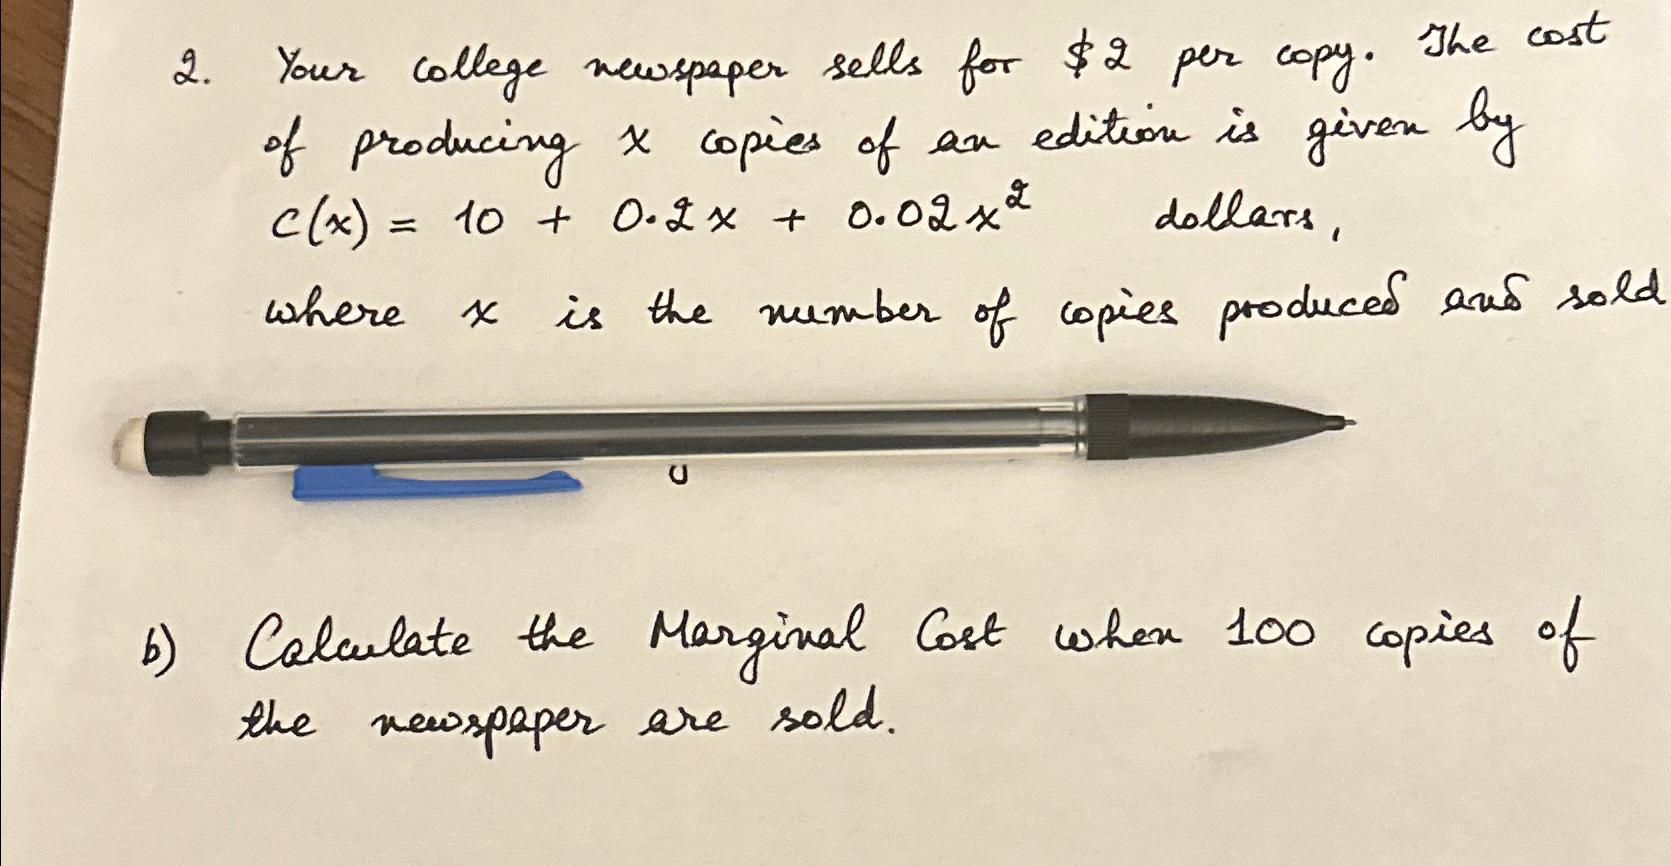 2. Your college newspaper sells for $2 per copy. The cost
of producing x copies of an edition is given by
C(x) = 10 + 0.2x + 0.02x² dollars,
where x is the number of copies produced and sold
b) Calculate the Marginal Cost when 100 copies of
the newspaper are sold.